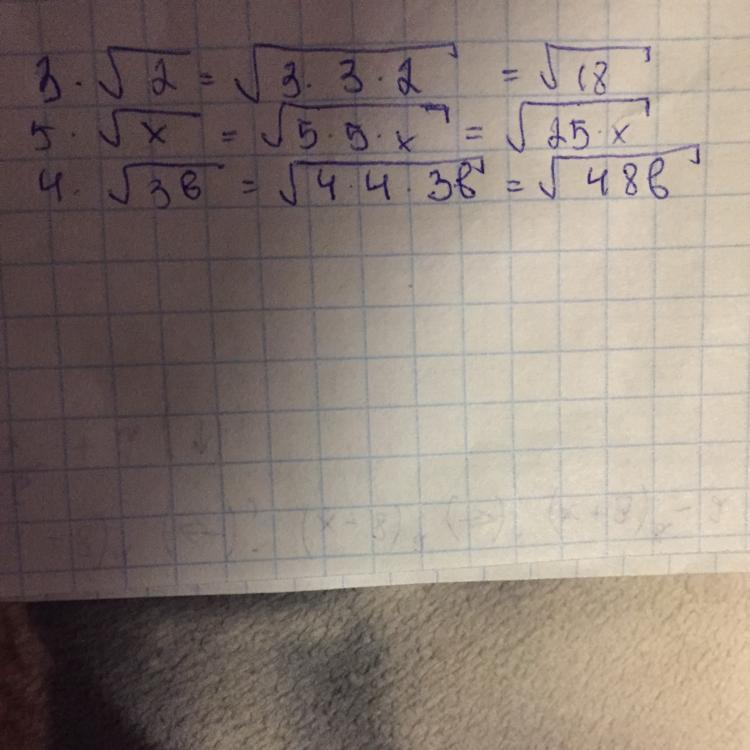 3 · √2 = √3 · 3 · 2 = √18
5 · √x = √5 · 5 · x = √25 · x
4 · √3b = √4 · 4 · 3b = √48b